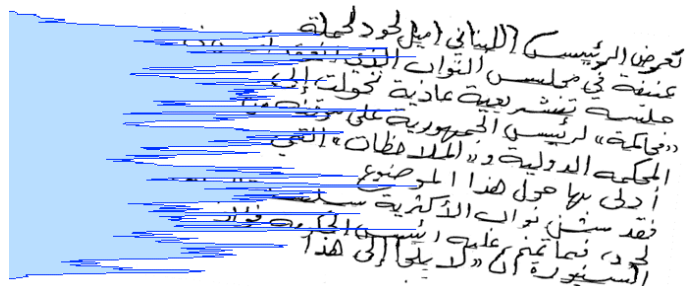 تعرض الرئيس اللبناني اميل لحود لحملة
عنيفة في مجلس النواب الذي انعقد
جلسة تشريعية عادية تحولت إلى
«محاكمة» لرئيس الجمهورية على موقفه من
المحكمة الدولية و«الملاحظات» التي
أدلى بها حول هذا الموضوع
فقد شن نواب الأكثرية
لحود، فيما تمنى عليه رئيس الحكومة فؤاد
السنيورة أن «لا يلجأ إلى هذا